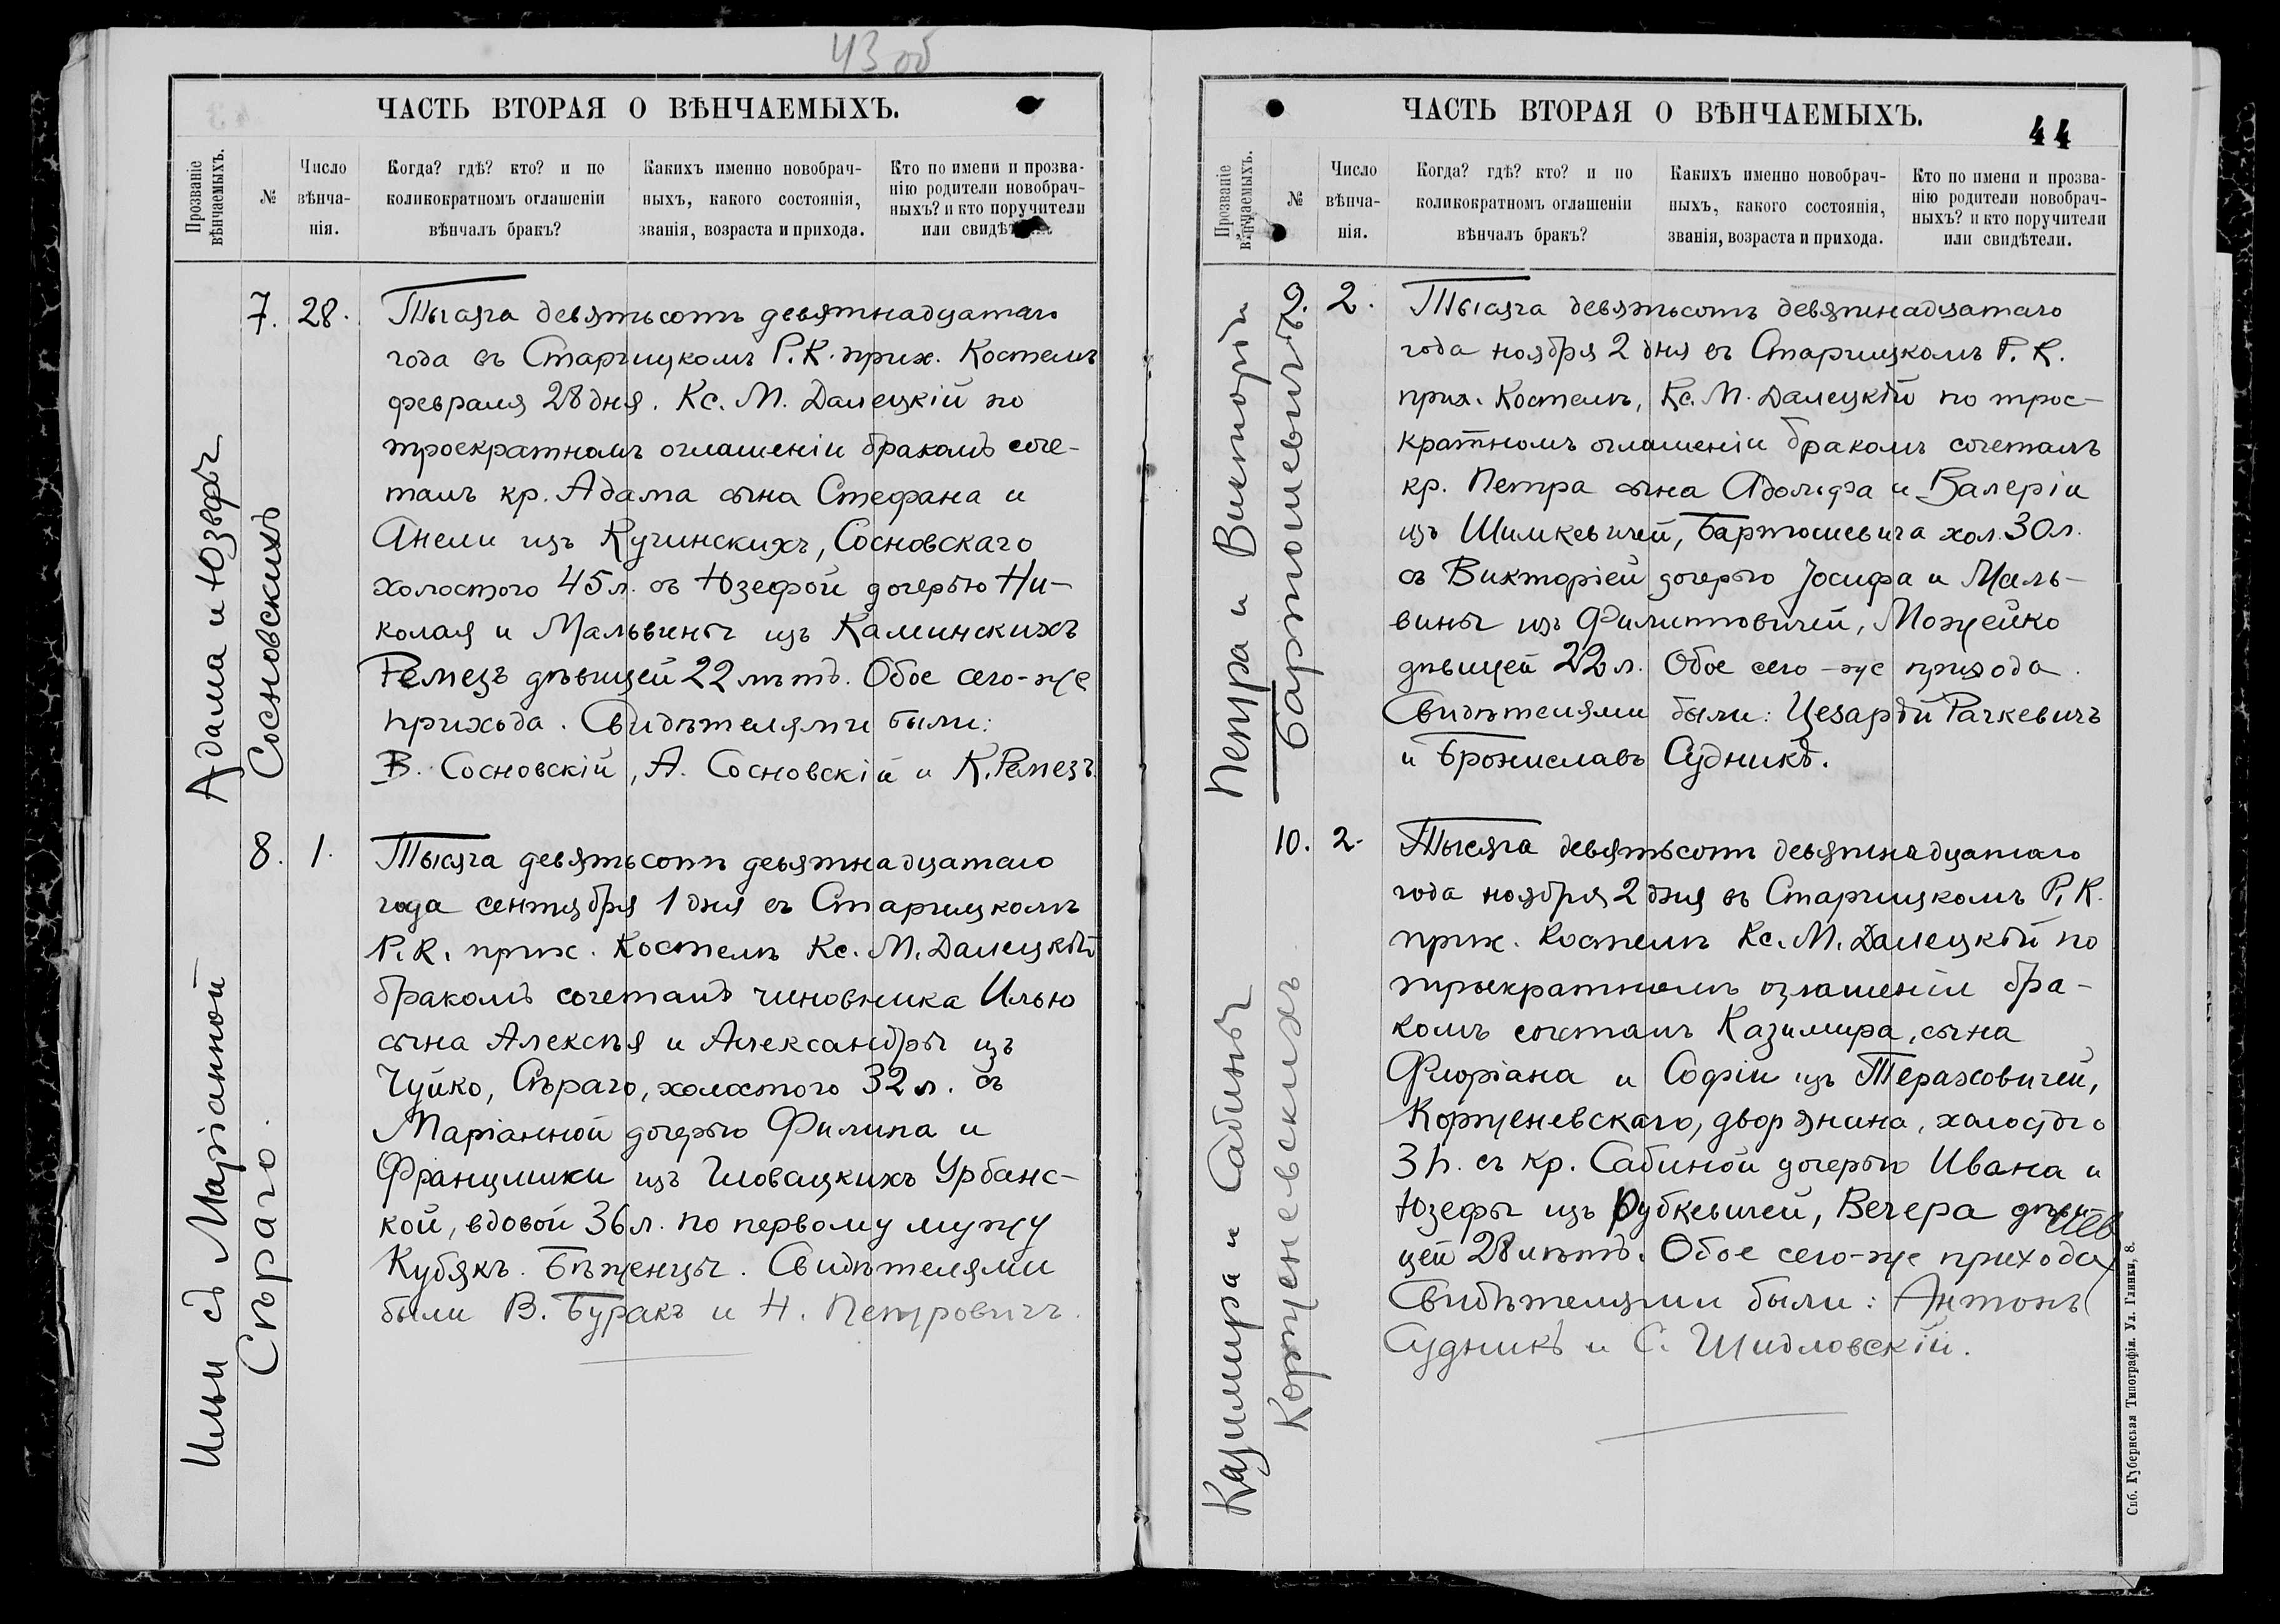 43 об
ЧАСТЬ ВТОРАЯ О ВѢНЧАЕМЫХЪ.
Прозваніе вѣнчаемыхъ.
№
Число вѣнча-нія.
Когда? гдѣ? кто? и по коликократномъ оглашеніи вѣнчалъ бракъ?
Какихъ именно новобрач-ныхъ, какого состоянія, званія, возраста и прихода.
Кто по имени и прозва-нію родители новобрач-ныхъ? и кто поручители или свидѣт
Адама и Юзефы
Сосновскихъ
7. 28.
Тысяча девятьсотъ девятнадцатаго
года въ Старчицкомъ Р.К. прих. Костелѣ
февраля 28 дня. Кс. М. Далецкій по
троекратномъ оглашеніи бракомъ соче-
талъ кр. Адама сына Стефана и
Анели изъ Кучинскихъ, Сосновскаго
холостого 45 л. съ Юзефой дочерью Ни-
колая и Мальвины изъ Каминскихъ
Ремезъ дѣвицей 22 лѣтъ. Обое сего-же
прихода. Свидѣтелями были:
В. Сосновскій, А. Сосновскій и К. Ремезъ.
Ильи съ Маріанной
Сѣраго.
8. 1.
Тысяча девятьсотъ девятнадцатаго
года сентября 1 дня въ Старчицкомъ
Р.К. прих. Костелѣ Кс. М. Далецкій
бракомъ сочеталъ чиновника Илью
сына Алексѣя и Александры изъ
Чуйко, Сѣраго, холостого 32 л. съ
Маріанной дочерью Филипа и
Францишки изъ Гловацкихъ Урбанс-
кой, вдовой 36 л. по первому мужу
Кубякъ. Бѣженцы. Свидѣтелями
были В. Буракъ и Н. Петровичъ.
ЧАСТЬ ВТОРАЯ О ВѢНЧАЕМЫХЪ.
44
Прозваніе вѣнчаемыхъ.
№
Число вѣнча-нія.
Когда? гдѣ? кто? и по коликократномъ оглашеніи вѣнчалъ бракъ?
Какихъ именно новобрач-ныхъ, какого состоянія, званія, возраста и прихода.
Кто по имени и прозва-нію родители новобрач-ныхъ? и кто поручители или свидѣтели.
Петра и Викторіи
Бартошевичъ
9. 2.
Тысяча девятьсотъ девятнадцатаго
года ноября 2 дня въ Старчицкомъ Р. К.
прих. Костелѣ, Кс. М. Далецкій по трое-
кратномъ оглашеніи бракомъ сочеталъ
кр. Петра сына Адольфа и Валеріи
изъ Шимкевичей, Бартошевича хол. 30 л.
съ Викторіей дочерью Іосифа и Маль-
вины изъ Филиповичей, Можейко
дѣвицей 22 л. Обое сего-же прихода.
Свидѣтелями были: Цезарій Рачкевичъ
и Брониславъ Судникъ.
Казимира и Сабины
Корженевскихъ
10. 2.
Тысяча девятьсотъ девятнадцатаго
года ноября 2 дня въ Старчицкомъ Р. К.
прих. Костелѣ Кс. М. Далецкій по
троекратномъ оглашеніи бра-
комъ сочеталъ Казимира, сына
Флоріана и Софіи изъ Тераховичей,
Корженевскаго, дворянина, холостого
съ кр. Сабиной дочерью Ивана и
Юзефы изъ Рубкевичей, Вечера дѣви-
цей 28 лѣтъ. Обое сего-же прихода
Свидѣтелями были: Антонъ
Судникъ и С. Шидловскій.
Спб. Губернская Типографія. Ул. Глинки, 8.